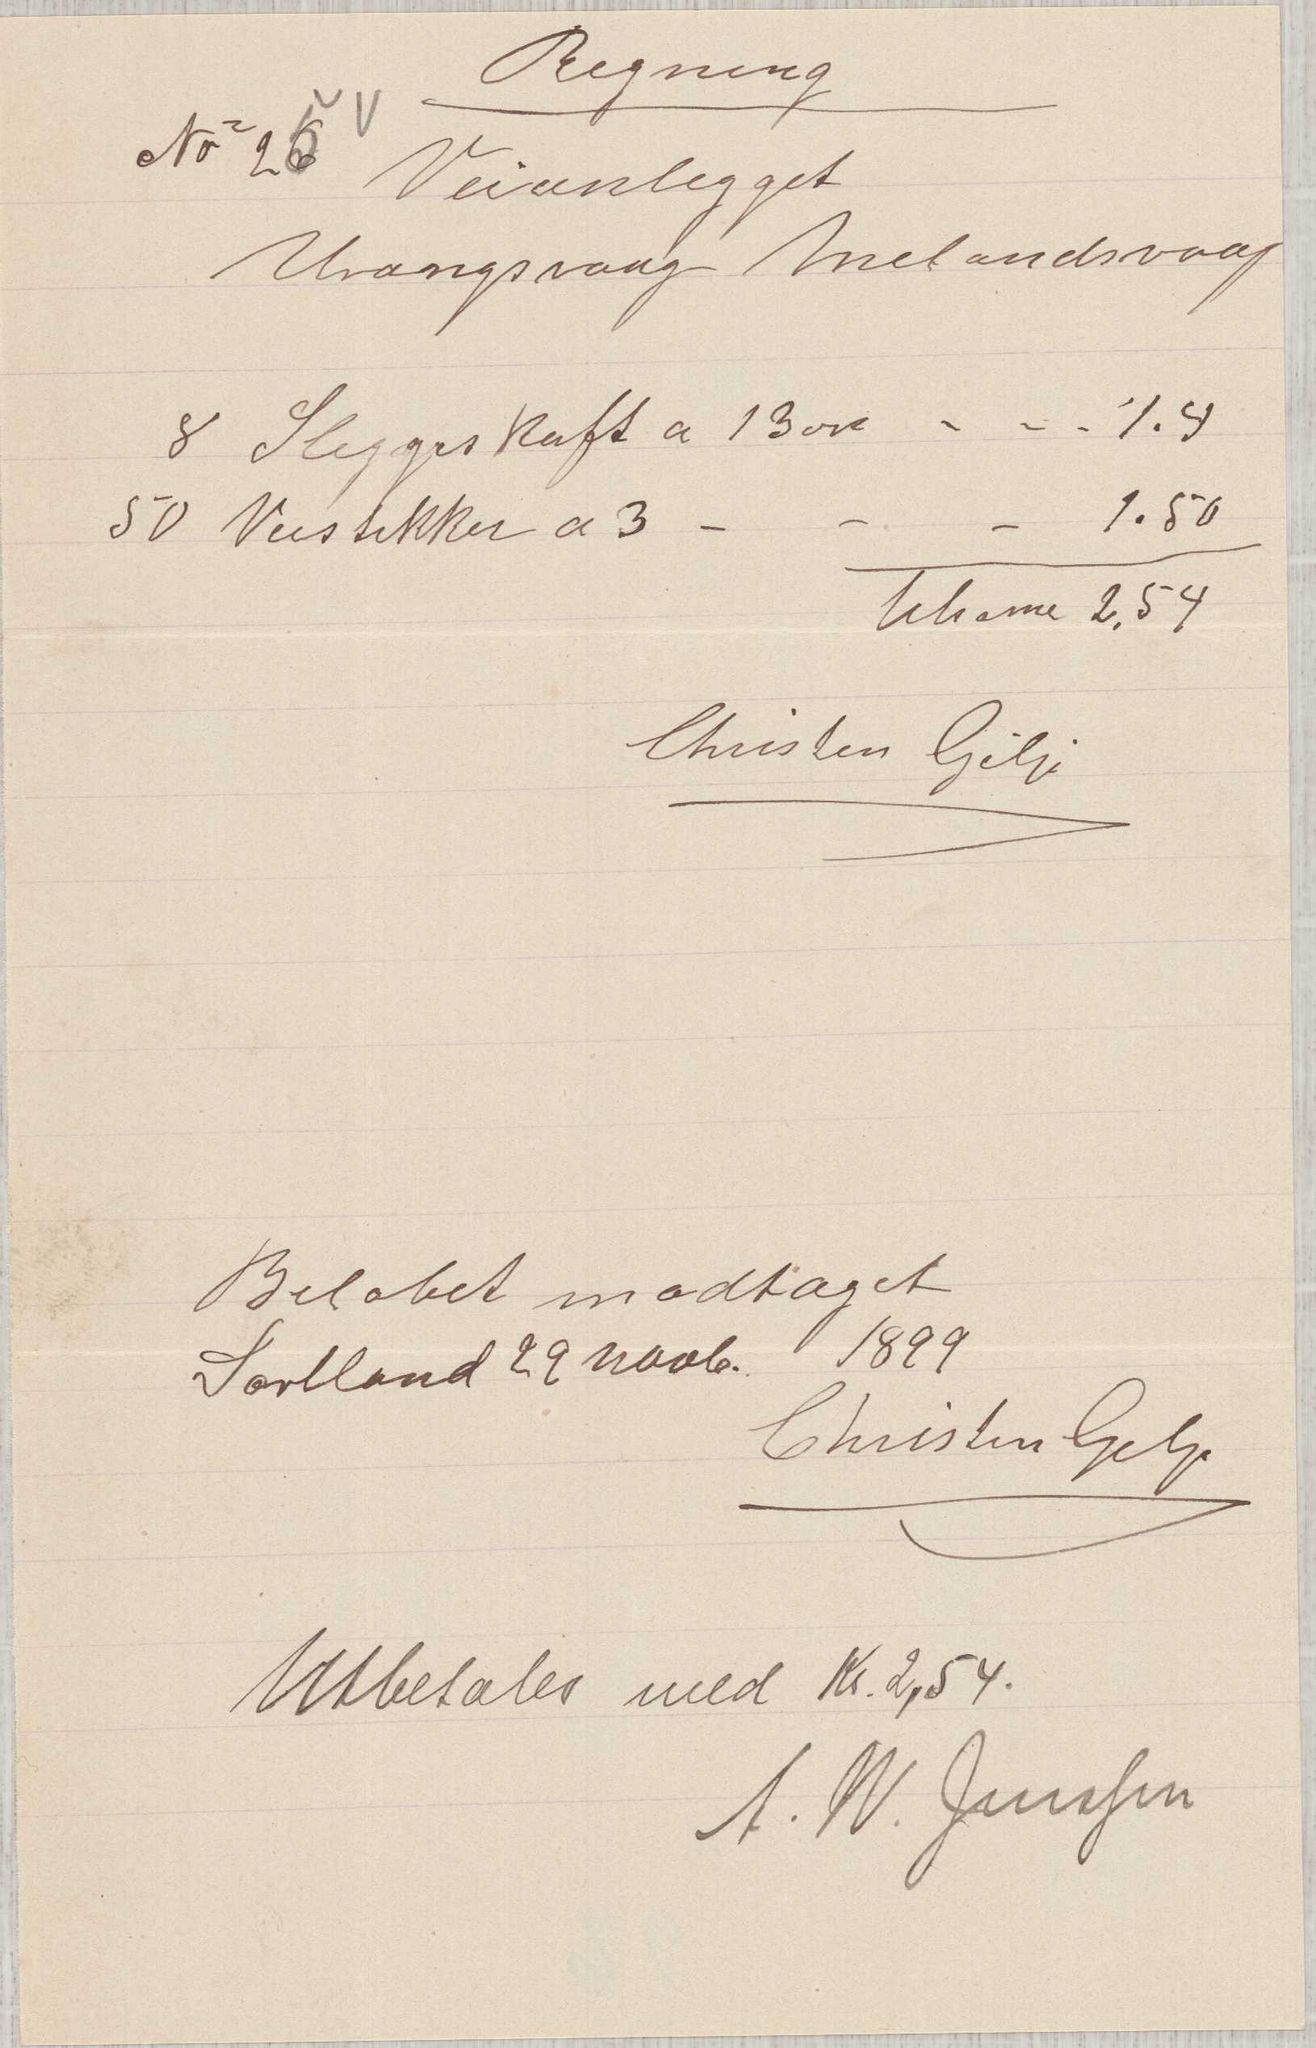 Regning
No 26 V
Veianlegget
Urangsvaag Melandsvaag
8 Sleggeskaft a 13 ore - - - 1.4
50 Veistikker a 3 - - - 1.50
tilsame 2,54
Christen Gilje
Belobet modtaget
Sortland 29 novb. 1899
Christen Gilje
Utbetales med Kr. 2,54.
A. W. Janssen